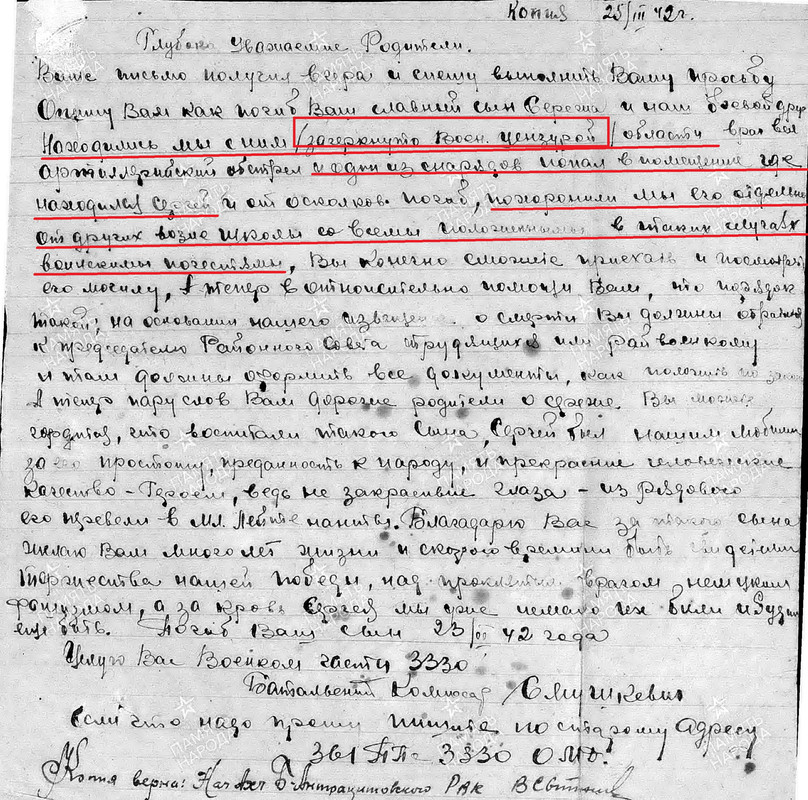 Копия 25/III 42 г.
Глубоко Уважаемые Родители.
Ваше письмо получил вчера и спешу выполнить Вашу просьбу
Опишу Вам как погиб Ваш славный сын Сережа и наш боевой друг
Находились мы с ним /зачеркнуто воен. цензурой/ области враг вел
артиллерийский обстрел и один из снарядов попал в помещение где
находился Сергей и от осколков погиб, похоронили мы его отдельно
от других возле школы со всеми положенными в таких случаях
воинскими почестями, Вы конечно сможите приехать и посмотреть
его могилу, А тепер в относительно помощи Вам, то порядок
такой; на основании нашего извещения о смерти Вы должны обратится
к председателю Районного Совета трудящихся или Райвоенкому
и там должны оформить все документы, как положить по закону
А тепер пару слов Вам дорогие родители о сереже. Вы можете
гордится, что воспитали такого сына, Сергей был нашим любимым
за его простоту, преданность к народу, и прекрасные человеческие
качество - Героем, ведь не закрасивые глаза - из рядового
его перевели в Мл. Лейтенанты. Благодарю Вас за такого сына
желаю Вам много лет жизни и скорого времени быть свидетями
торжества нашей победы, над проклятым врагом немецким
фашизмом, а за кровь Сергея мы уже немало их били и будем
еще бить. Погиб Ваш сын 23/II 42 года
Целую Вас Военком части 3330
Батальенный Комисар /Смушкевич
если что надо прошу пишите по старому адресу
361 ППс 3330 ОМБ.
Копия верна: Нач АХЧ Б-Антрацитовского РВК
ПАМЯТЬ НАРОДА